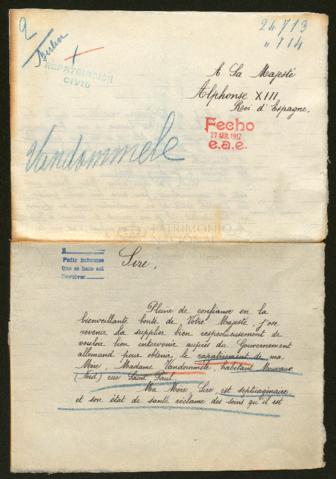 2
24713
" 714
Berlin
REPATRIACION
CIVIL
A Sa Majesté
Alphonse XIII
Roi d'Espagne.
Fecho
27 ABR. 1917
e.a.e.
Vandommele
PATRIMONIO
Pedir informes
Que se haee así
Sire,
Pleine de confiance en la
bienveillante bonté de Votre Majesté, j'ose
revenir la supplier bien respectueusement de
vouloir bien intervenir auprès du Gouvernement
allemand pour obtenir le rapatriement de ma
Mère, Madame Vandommele, habitant Mouvaux
(Nord) rue Saint Paul.
Ma Mère Sire est septuagénaire
et son état de santé réclame des soins qu'il est